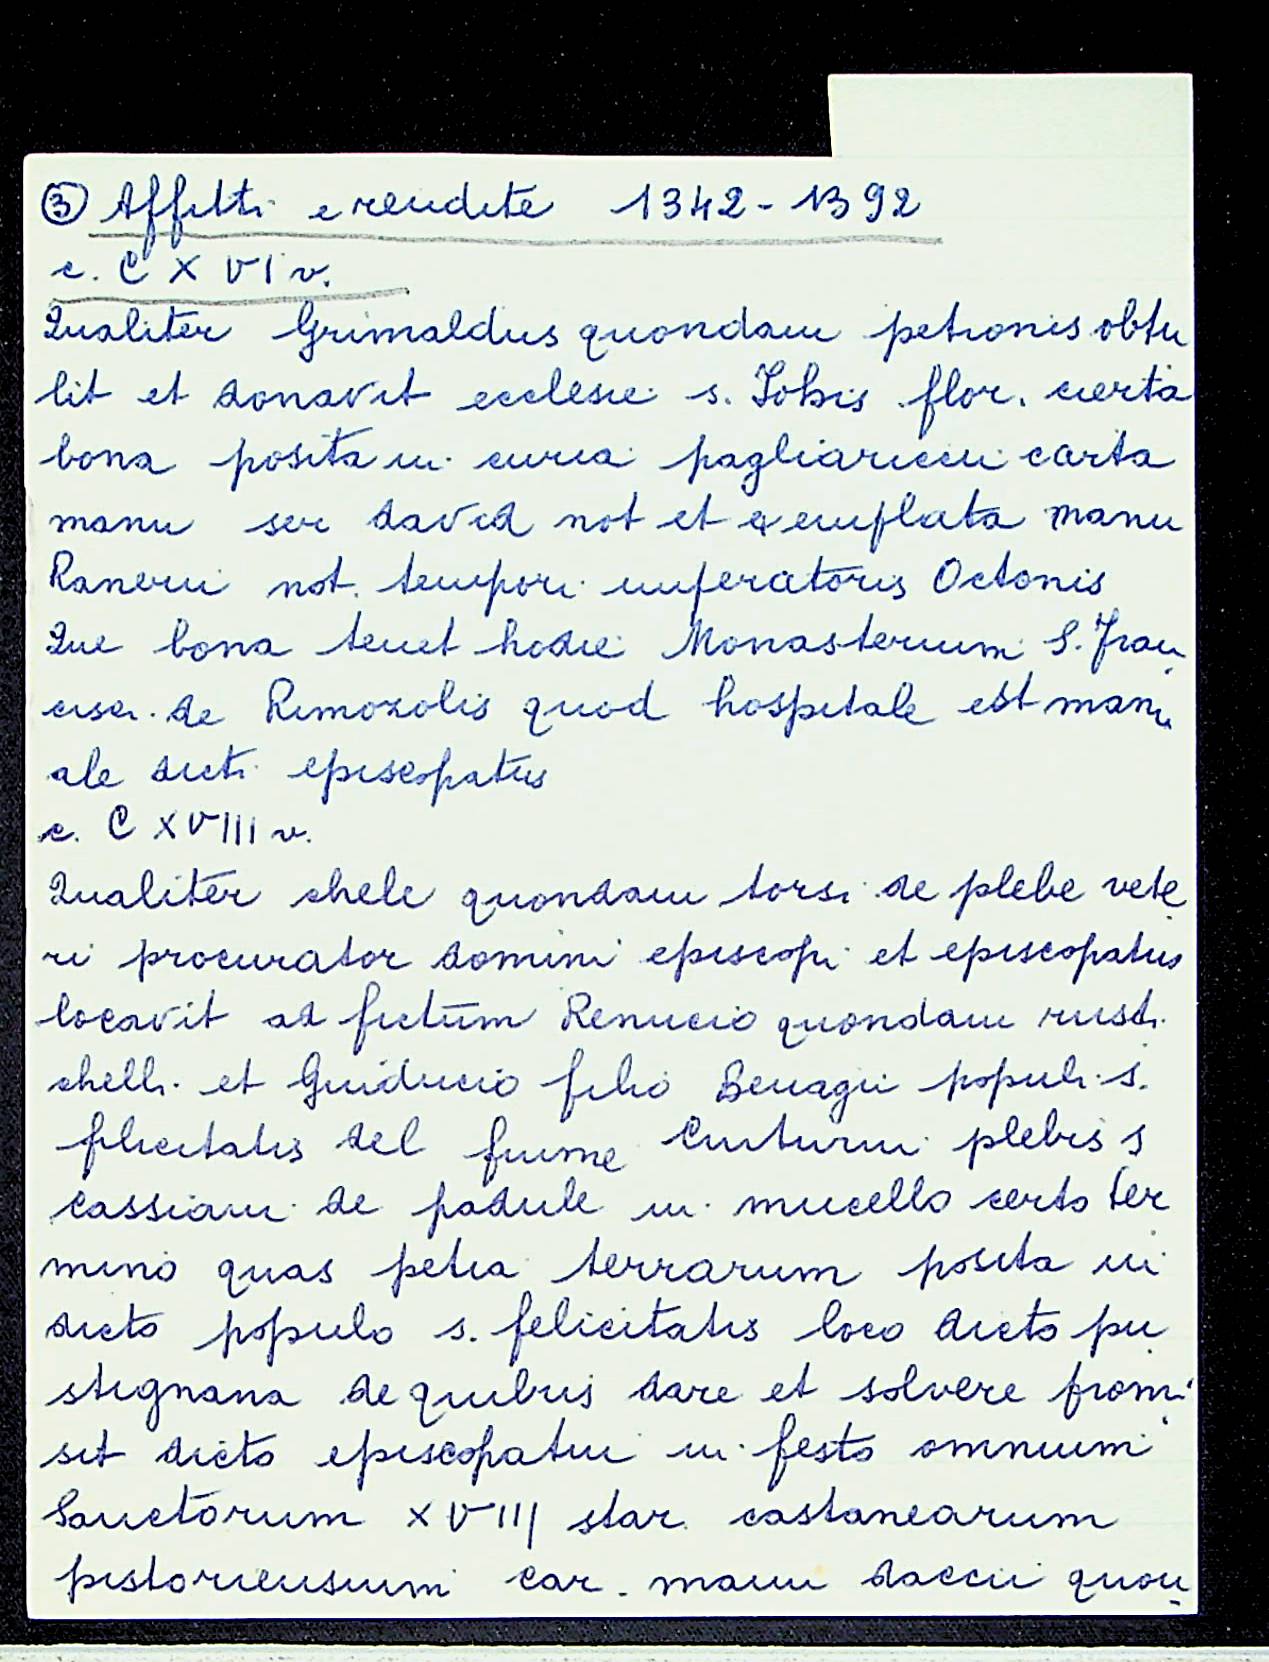 ③ Affitti e rendite 1342-1392
c. CXVI v.
Qualiter Grimaldus quondam petronis obtu
lit et donavit ecclesie s. Johis flor. certa
bona posita in curia pagliariccii carta
manu ser david not et exemplata manu
Ranerii not. tempori imperatoris Octonis
Que bona tenet hodie Monasterium S. Fran
cisci de Rimozolis quod hospitale est manu
ale dicti episcopatus
c. CXVIII v.
Qualiter chele quondam torsi de plebe vete
ri procurator domini episcopi et episcopatus
locavit ad fictum Renucio quondam rusti
chelli et Guiducio filio Benagii populi s.
filicitatis del fiume plebis s
cassiani de padule in mucello certo ter
mino quas petia terrarum posita in
dicto populo s. felicitatis loco dicto pu
stignana de quibus dare et solvere promi
sit dicto episcopatui in festo omnium
Sanctorum XVIII star. castanearum
pistoriensium car. manu daccii quon